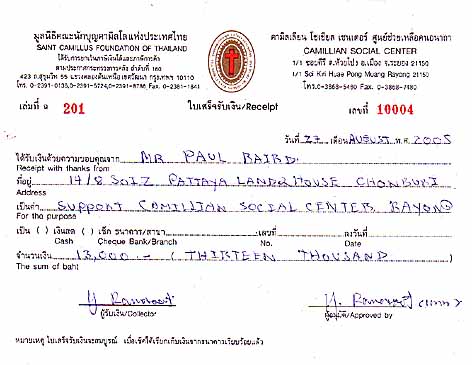 มูลนิธิคณะนักบุญคามิลโลแห่งประเทศไทย
SAINT CAMILLUS FOUNDATION OF THAILAND
ได้รับการยกเว้นภาษีเงินได้และภาษีการค้า
ตามประกาศกระทรวงการคลัง ลำดับที่ 160
423 ถ.สุขุมวิท 55 แขวงคลองตันเหนือ เขตวัฒนา กรุงเทพฯ 10110
โทร. 0-2391-0135, 0-2391-5724, 0-2391-8786 Fax. 0-2381-1841
คามิลเลียน โซเชียล เซนเตอร์ ศูนย์ช่วยเหลือคนอนาถา
CAMILLIAN SOCIAL CENTER
1/1 ซอยคีรี ต.ห้วยโป่ง อ.เมือง จ.ระยอง 21150
1/1 Soi Kiri Huae Pong Muang Rayong 21150
โทร. 0-3868-5480 Fax. 0-3868-7480
เล่มที่ 201
ใบเสร็จรับเงิน/Receipt
เลขที่ 10004
วันที่ 27 เดือน AUGUST พ.ศ. 2005
ได้รับเงินด้วยความขอบคุณจาก MR PAUL BAIRD
Receipt with thanks from
ที่อยู่ 14/8 SOI 2 PATTAYA LAND 2 HOUSE CHONBURI
Address
เป็นค่า SUPPORT CAMILLIAN SOCIAL CENTER, RAYONG
For the purpose
เป็น ( ) เงินสด ( ) เช็ค ธนาคาร/สาขา เลขที่ ลงวันที่
Cash Cheque Bank/Branch No. Date
จำนวนเงิน 13,000.- (THIRTEEN THOUSAND)
The sum of baht
ผู้รับเงิน/Collector
ผู้อนุมัติ/Approved by
หมายเหตุ ใบเสร็จรับเงินจะสมบูรณ์ เมื่อเช็คได้เรียกเก็บเงินจากธนาคารเรียบร้อยแล้ว